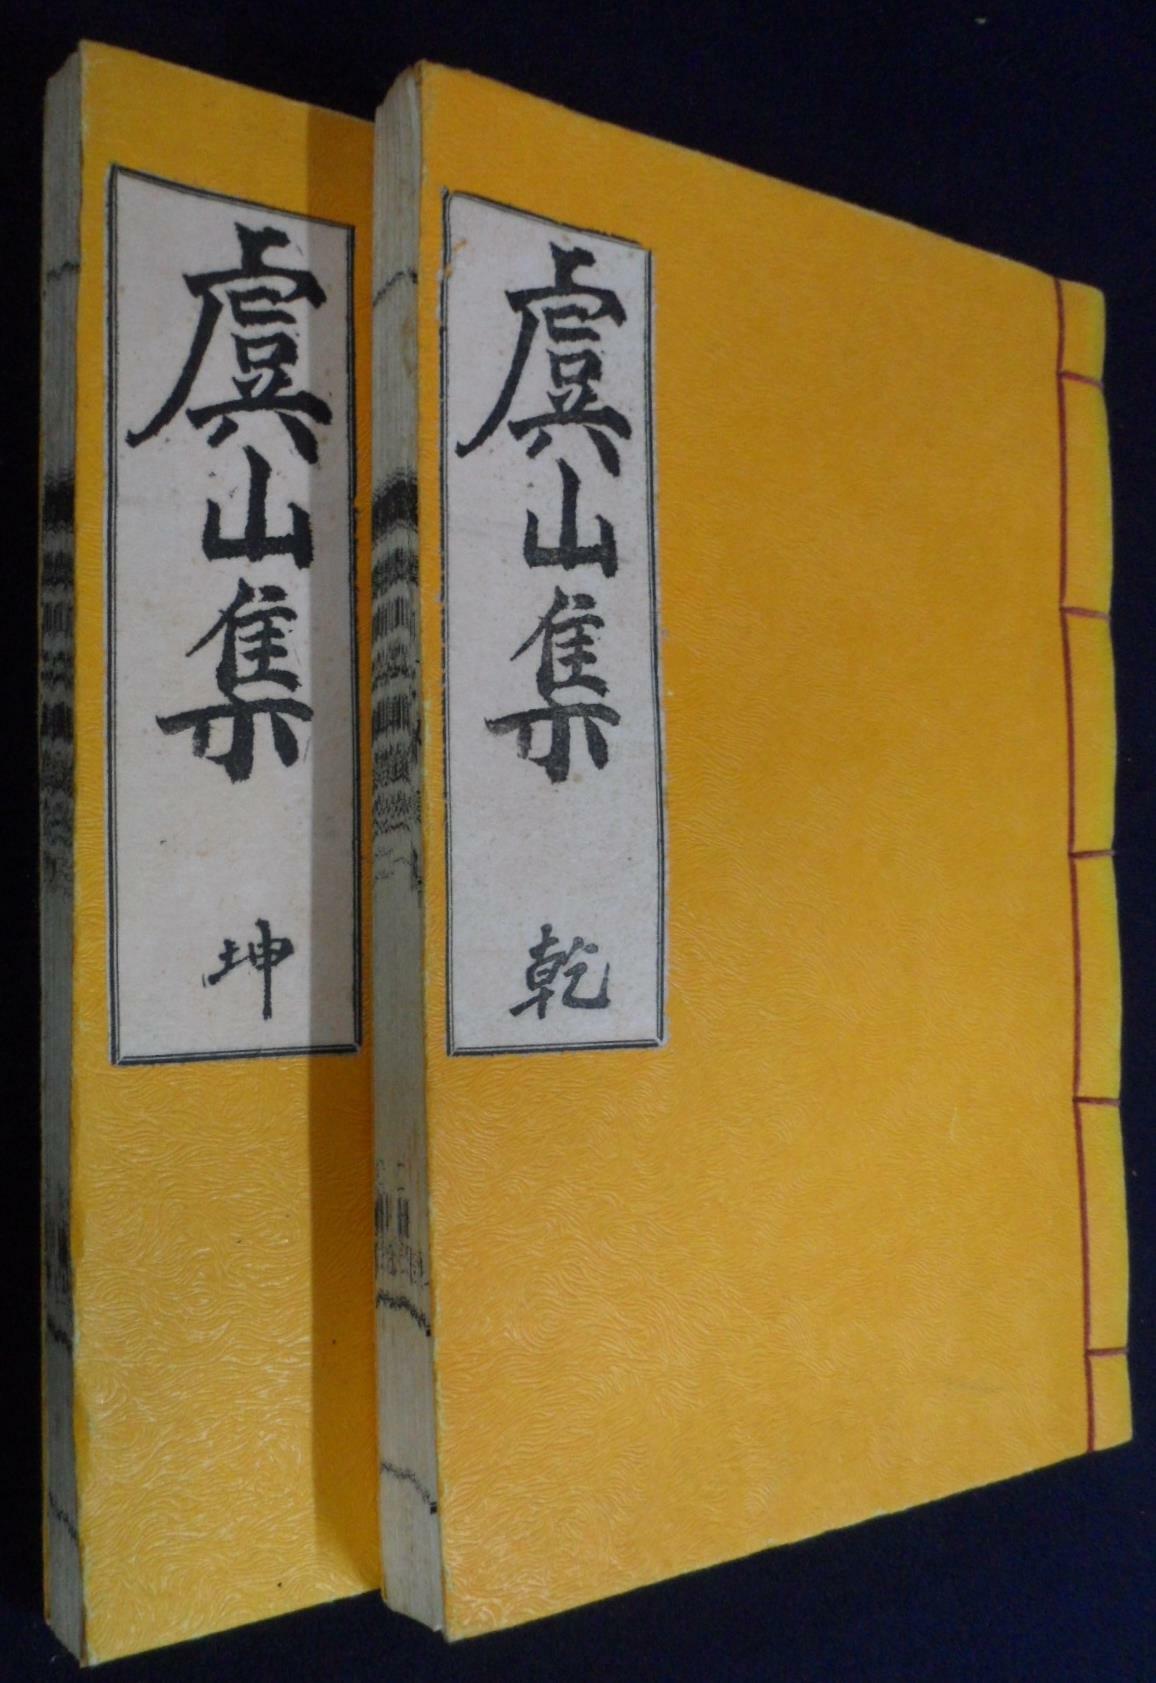 虞山集
坤
虞山集
乾